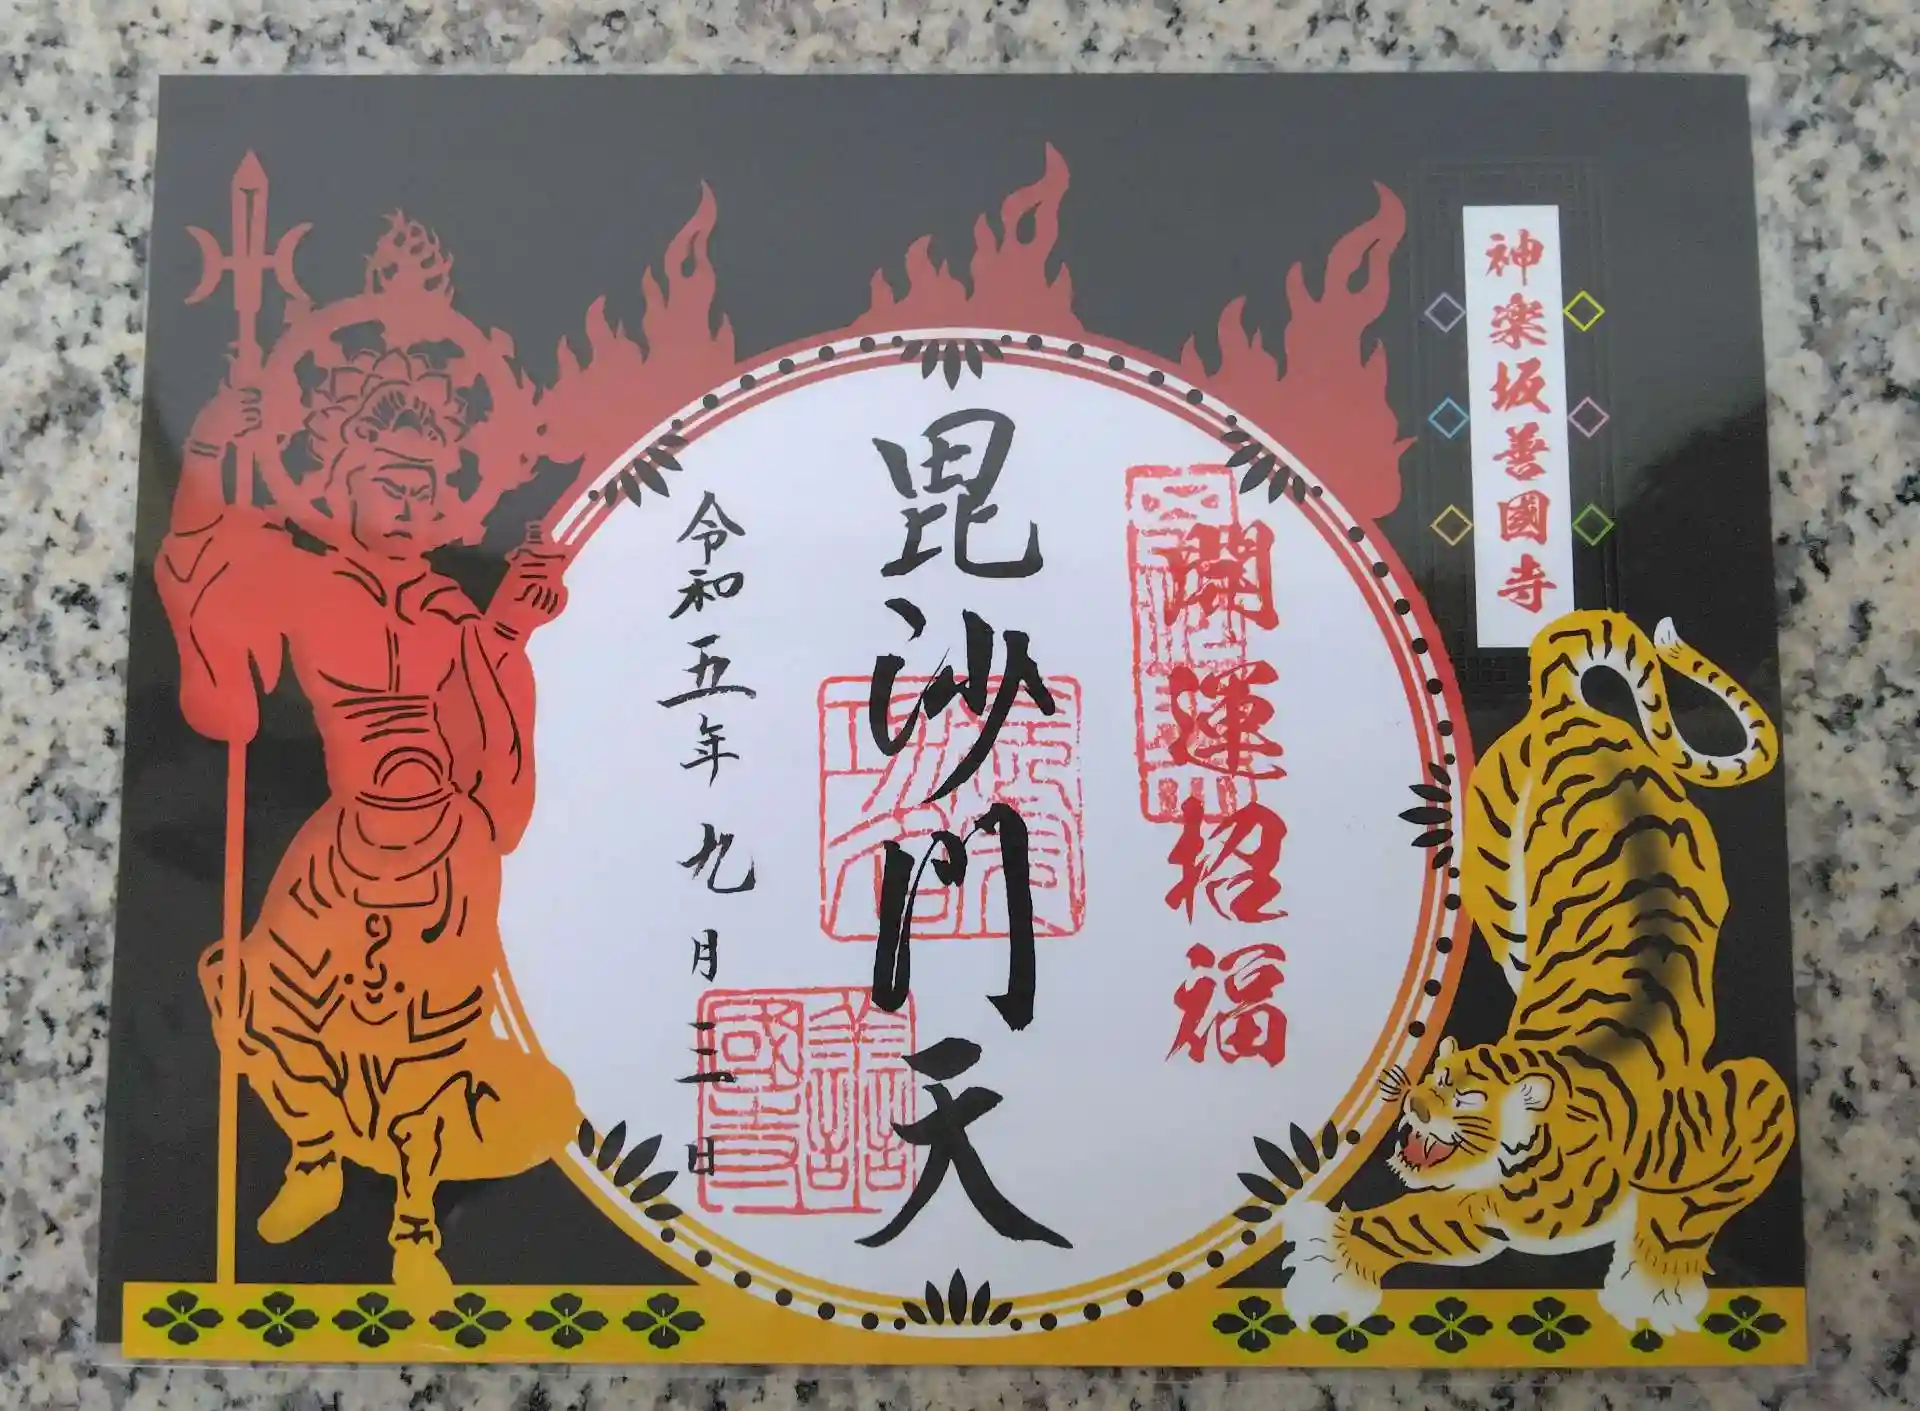 神楽坂善國寺
開運招福
毘沙門天
令和五年九月三日
善國寺